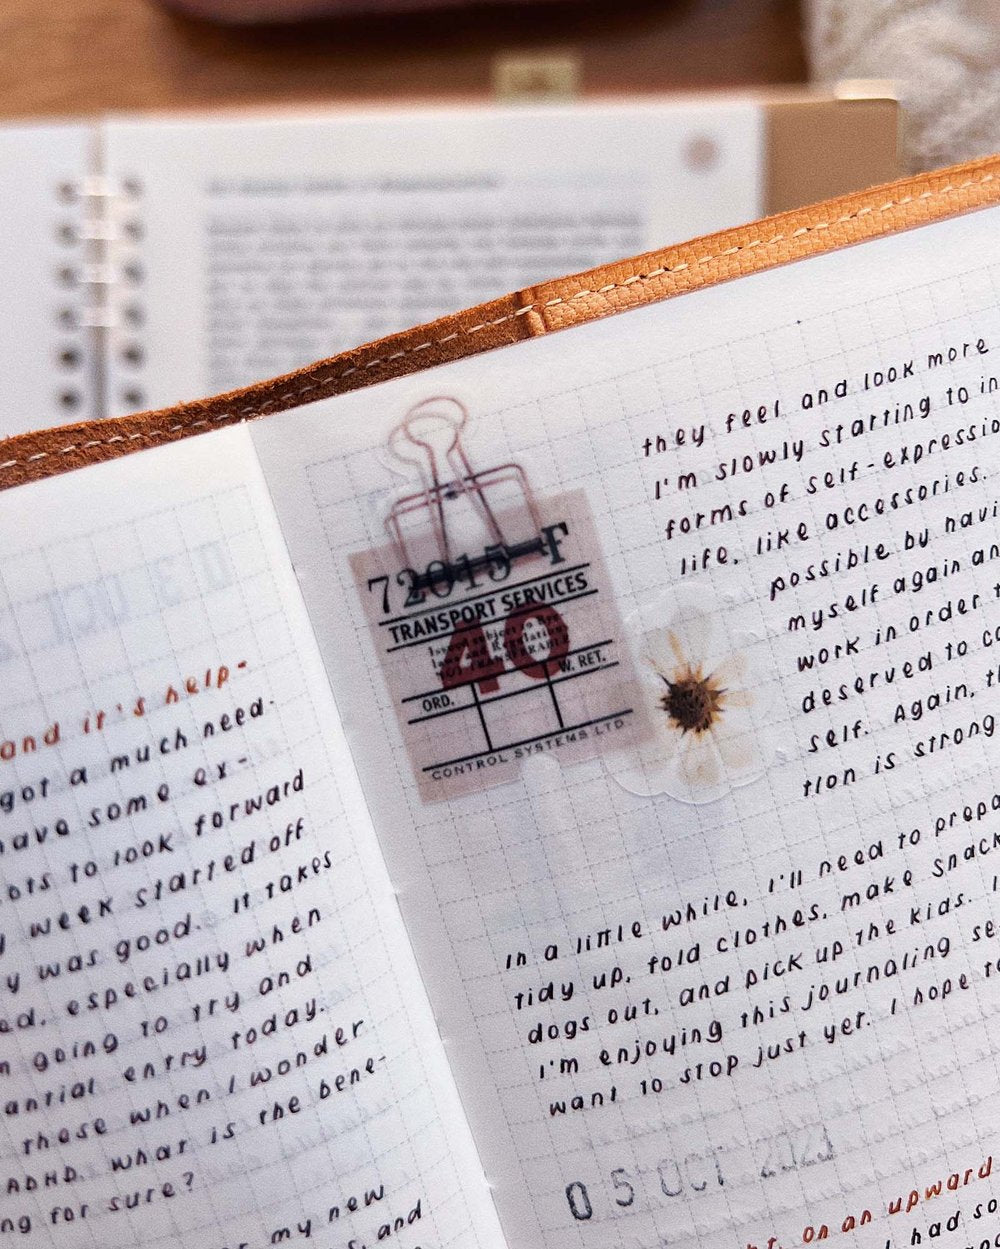 and it's help-
got a much need-
have some ex-
to look forward
week started off
was good. It takes
especially when
going to try and
entry today.
these when I wonder
ADHD. what is the bene-
ng for sure?
my new
and
72015 F
TRANSPORT SERVICES
40
Issued subject to Bye-
laws and Regulations
NOT TRANSFERABLE
ORD. W. RET.
CONTROL SYSTEMS LTD
they feel and look more
I'm slowly starting to in
forms of self-expressio
life, like accessories.
possible by havi
myself again an
work in order t
deserved to co
self. Again, th
tion is strong
In a little while, I'll need to prepa
tidy up, fold clothes, make snack
dogs out, and pick up the kids. I
I'm enjoying this journaling se
want to stop just yet. I hope to
05 OCT 2023
on an upward
had so